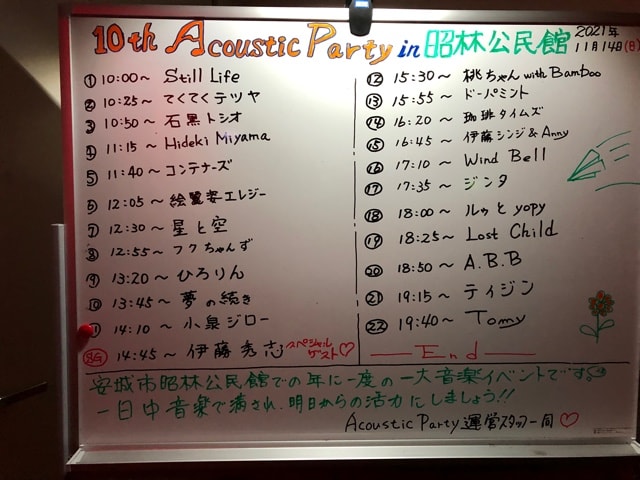 10th Acoustic Party in 昭林公民館
2021年
11月14日(日)
① 10:00〜 Still Life
② 10:25〜 てくてくテツヤ
③ 10:50〜 石黒トシオ
④ 11:15〜 Hideki Miyama
⑤ 11:40〜 コンテナーズ
⑥ 12:05〜 絵描姿エレジー
⑦ 12:30〜 星と空
⑧ 12:55〜 フクちゃんず
⑨ 13:20〜 ひろりん
⑩ 13:45〜 夢の続き
⑪ 14:10〜 小泉ジロー
SG 14:45〜 伊藤秀志 スペシャルゲスト♡
⑫ 15:30〜 桃ちゃん with Bamboo
⑬ 15:55〜 ドーパミント
⑭ 16:20〜 珈琲タイムズ
⑮ 16:45〜 伊藤シンジ & Anny
⑯ 17:10〜 Wind Bell
⑰ 17:35〜 ジンタ
⑱ 18:00〜 ルゥと yopy
⑲ 18:25〜 Lost Child
⑳ 18:50〜 A.B.B
㉑ 19:15〜 ティジン
㉒ 19:40〜 Tomy
End
安城市昭林公民館での年に一度の一大音楽イベントです。
一日中音楽で満され、明日からの活力にしましょう!!
Acoustic Party 運営スタッフ一同♡